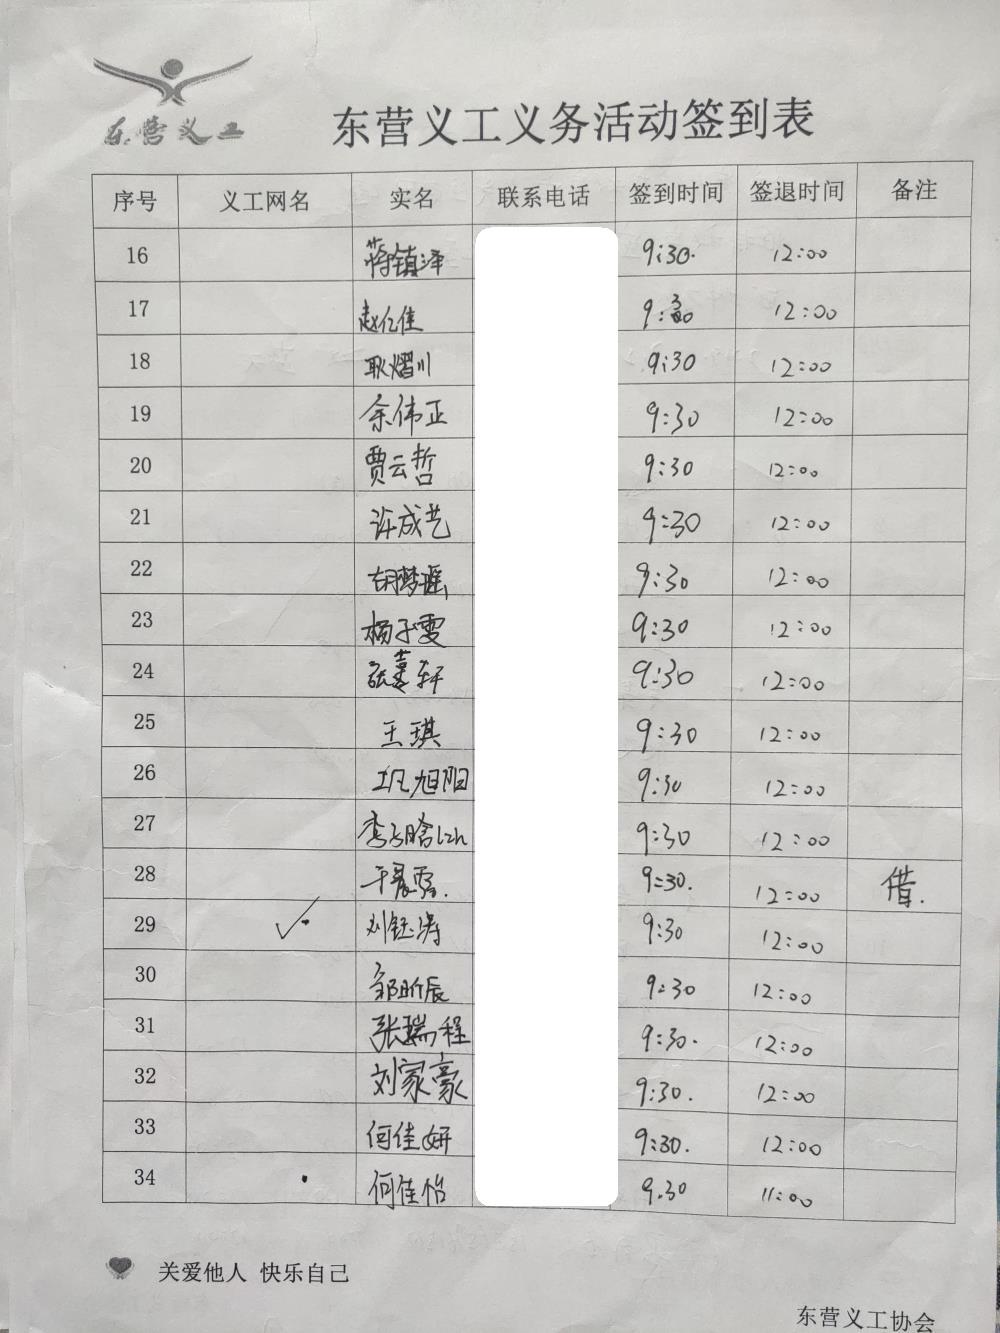 东营义工
东营义工义务活动签到表
序号 义工网名 实名 联系电话 签到时间 签退时间 备注
16 蒋镇泽 9:30. 12:00
17 赵仁佳 9:30 12:00
18 耿熠川 9:30 12:00
19 余伟正 9:30 12:00
20 贾云哲 9:30 12:00
21 许成艺 9:30 12:00
22 胡梦瑶 9:30 12:00
23 杨子雯 9:30 12:00
24 张熹轩 9:30 12:00
25 王琪 9:30 12:00
26 旭阳 9:30 12:00
27 9:30 12:00
28 9:30. 12:00 借.
29 ✓ 刘钰涛 9:30 12:00
30 邹昕辰 9:30 12:00
31 张瑞程 9:30. 12:00
32 刘家豪 9:30. 12:00
33 何佳妍 9:30. 12:00
34 何佳怡 9.30 11:00
关爱他人 快乐自己
东营义工协会